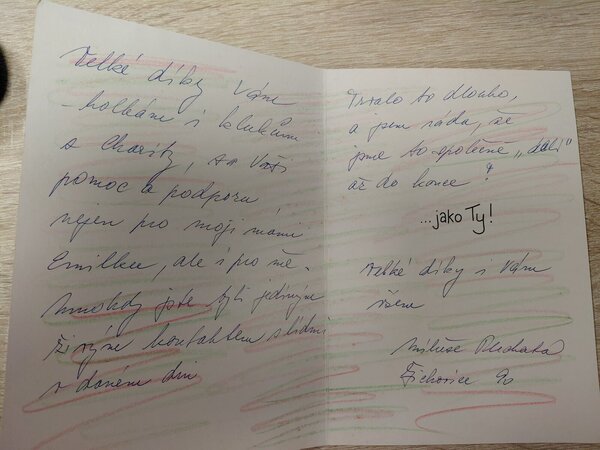 Velké díky Vám
- holkám i klukům
z Charity, za Vaši
pomoc a podporu
nejen pro moji mámu
Emilku, ale i pro mě.
Mnohdy jste byli jediným
živým kontaktem s lidmi
v daném dni
Trvalo to dlouho,
a jsem ráda, že
jsme to společně „dali"
až do konce
...jako Ty!
Velké díky i Vám
všem
Miluše
96